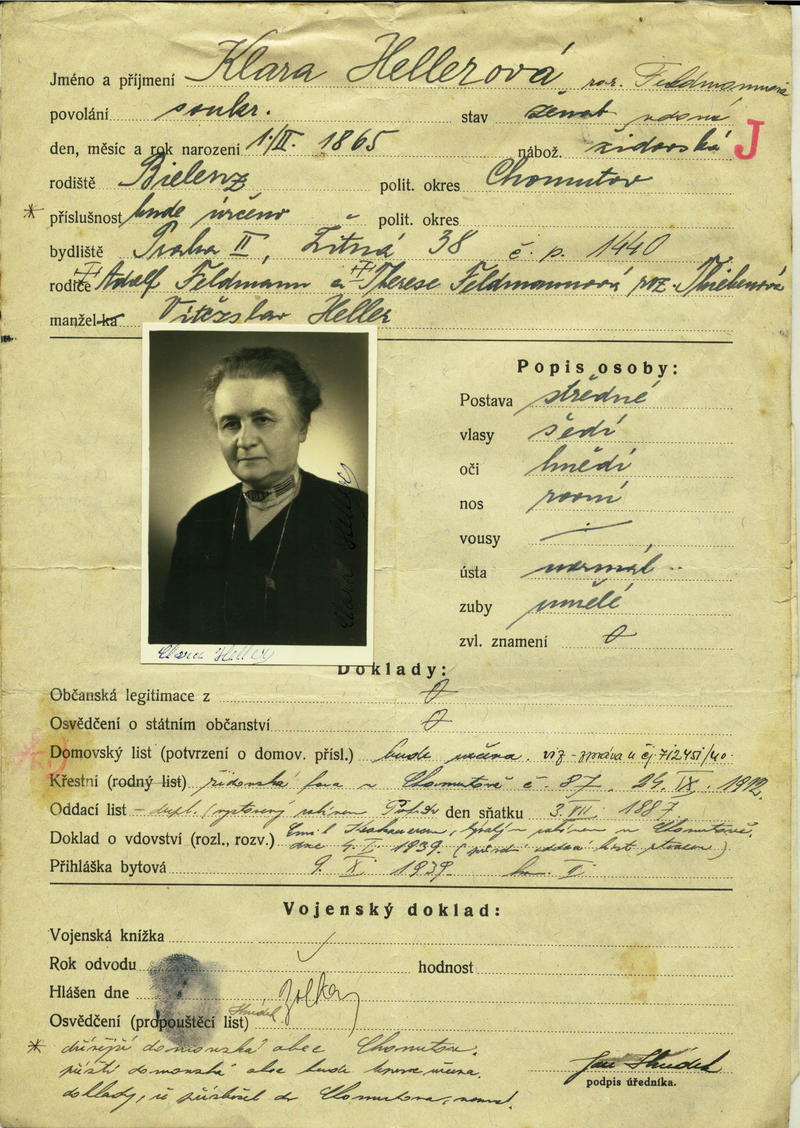 Jméno a příjmení Klara Hellerová roz. Feldmannová
povolání soukr. stav ženat vdova
den, měsíc a rok narození 1./III. 1865 nábož. židovská J
rodiště Bielenz polit. okres Chomutov
* příslušnost bude určeno polit. okres
bydliště Praha II, Žitná 38 č. p. 1440
rodiče Adolf Feldmann a Therese Feldmannová roz.
manžel-ka Vítězslav Heller
Popis osoby:
Postava středně
vlasy šedí
oči hnědí
nos rovní
vousy
ústa normál
zuby umělé
zvl. znamení 0
Clara Heller
Clara Heller
Doklady:
Občanská legitimace z 0
Osvědčení o státním občanství 0
Domovský list (potvrzení o domov. přísl.) bude určena. viz zpráva u čj. 712451/40
Křestní (rodný list) židovská fara v Chomutově č. 87. 24. IX. 1912.
Oddací list dupl. den sňatku 3. VII. 1887
Doklad o vdovství (rozl., rozv.) Emil rabínem v Chomutově.
dne 4. 1939.
Přihláška bytová 9. X. 1939. II
Vojenský doklad:
Vojenská knížka
Rok odvodu hodnost
Hlášen dne
Osvědčení (propouštěcí list)
* domovská obec Chomutov.
domovská obec bude určena.
doklady, z Chomutova,
podpis úředníka.